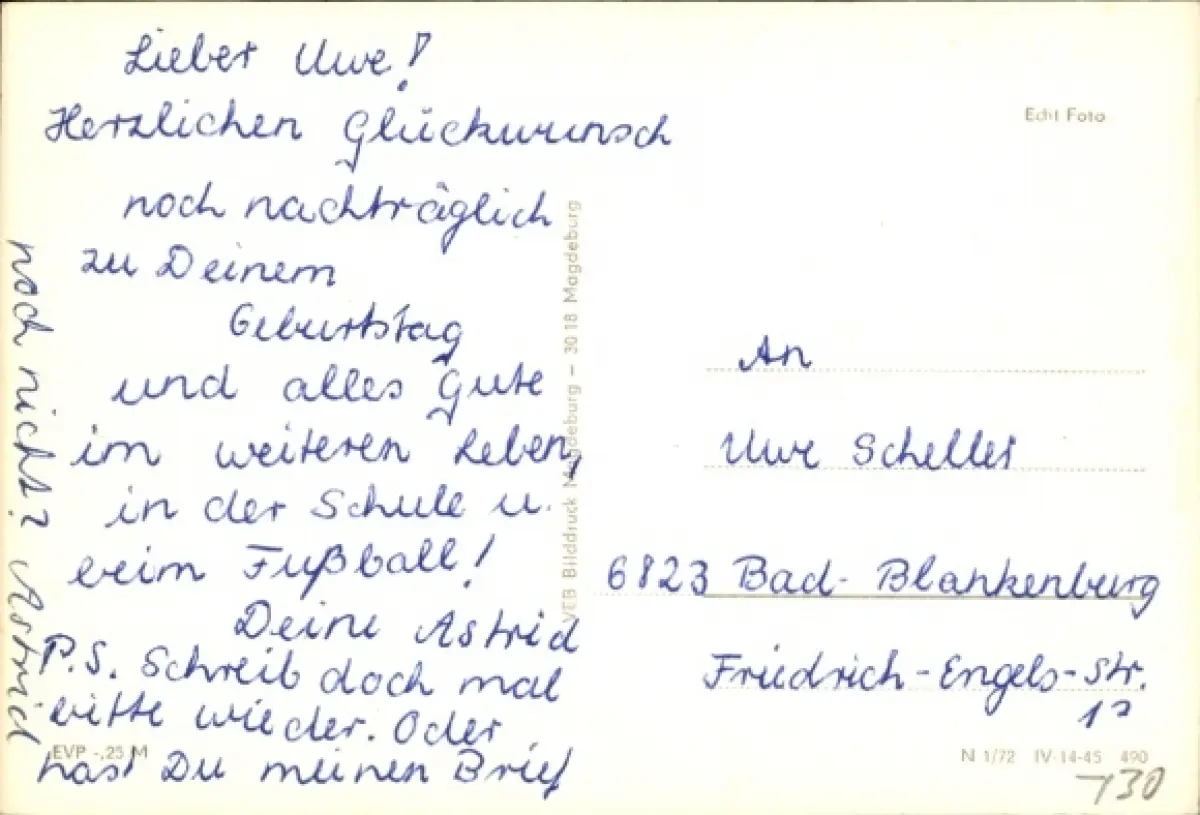 Lieber Uwe!
Herzlichen Glückwunsch
noch nachträglich
zu Deinem
Geburtstag
und alles Gute
im weiteren Leben,
in der Schule u.
beim Fußball!
Deine Astrid
P.S. Schreib doch mal
bitte wieder. Oder
hast Du meinen Brief
noch nicht? Astrid
EVP -,25 M
VEB Bilddruck Magdeburg – 3018 Magdeburg
Edit Foto
An
Uwe Scheller
6823 Bad-Blankenburg
Friedrich-Engels-Str.
N 1/72 IV-14-45 490